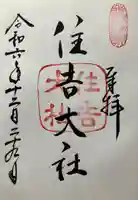 奉拝
住吉大社
住吉大社
令和六年十二月二十九日